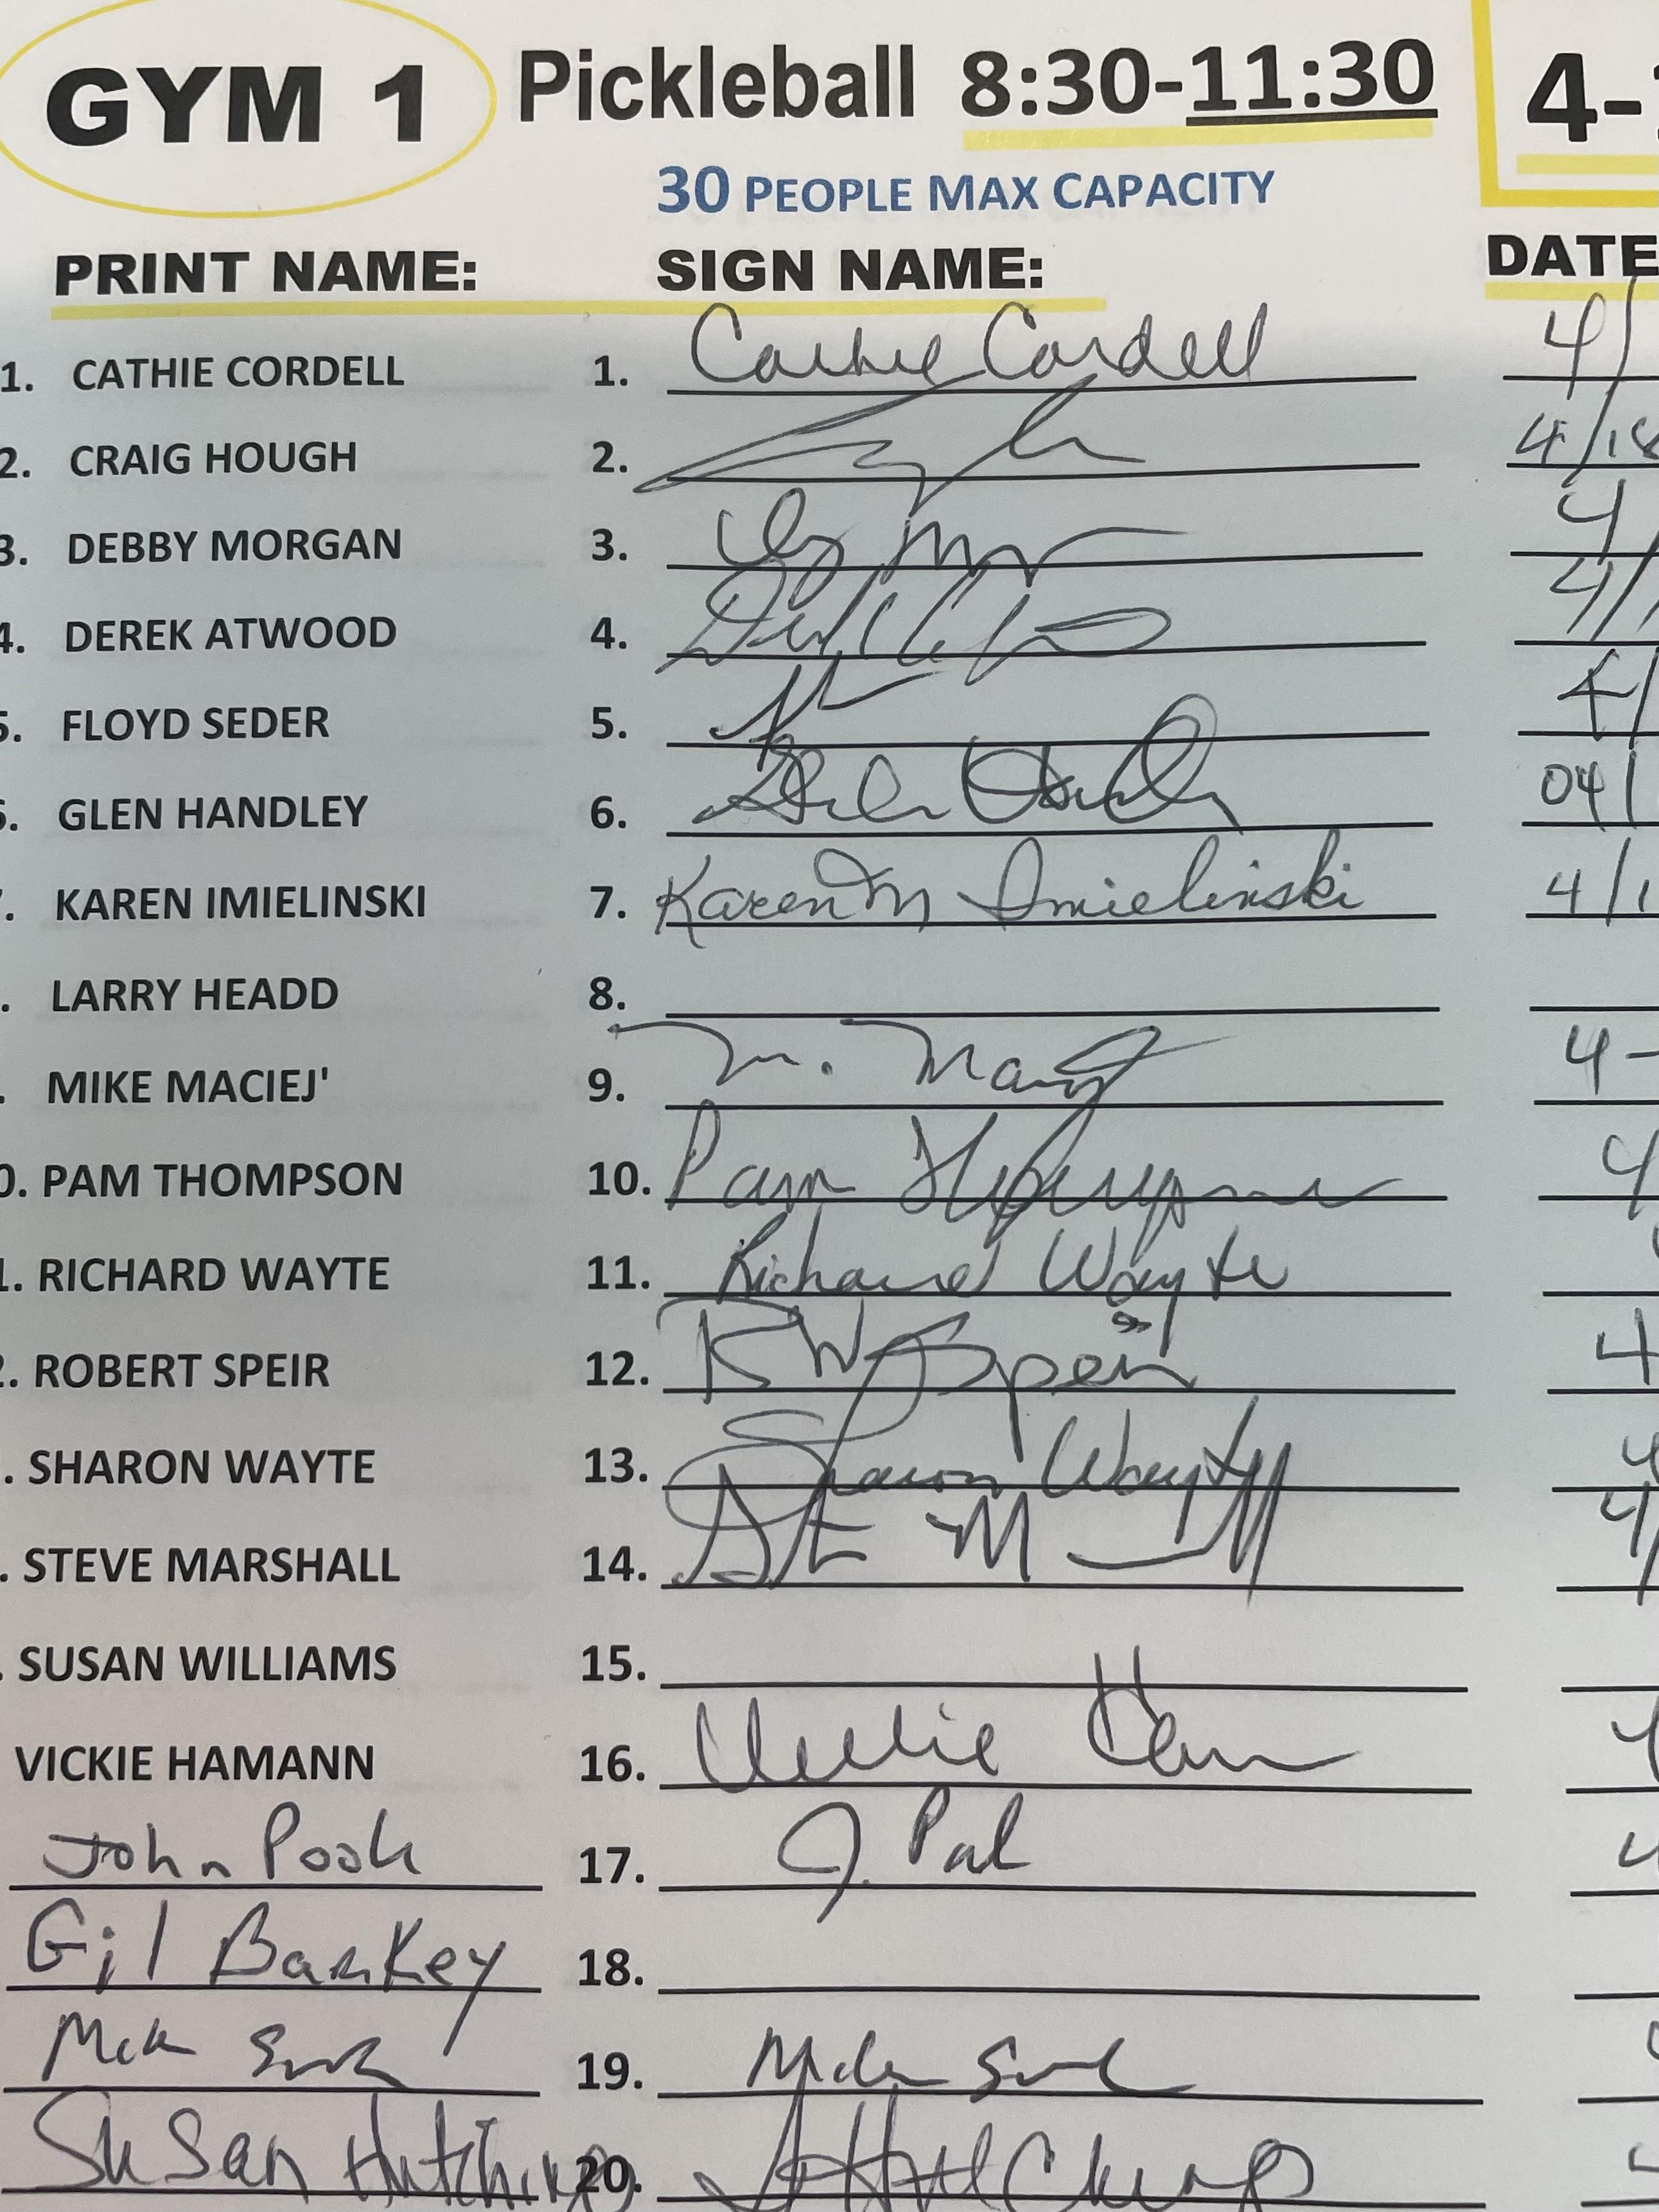 GYM 1 Pickleball 8:30-11:30 4-
30 PEOPLE MAX CAPACITY
PRINT NAME: SIGN NAME: DATE
1. CATHIE CORDELL 1. Cathie Cordell 4/
2. CRAIG HOUGH 2. 4/18
3. DEBBY MORGAN 3. 4/
4. DEREK ATWOOD 4. 4/
5. FLOYD SEDER 5. 4/
6. GLEN HANDLEY 6. Glen Handley 04/
7. KAREN IMIELINSKI 7. Karen M Imielinski 4/1
. LARRY HEADD 8.
. MIKE MACIEJ' 9. M. 4-
0. PAM THOMPSON 10. Pam Thompson 4
1. RICHARD WAYTE 11. Richard Wayte
2. ROBERT SPEIR 12. RW Speir 4
. SHARON WAYTE 13. Sharon Wayte 4
. STEVE MARSHALL 14. 4/
. SUSAN WILLIAMS 15.
VICKIE HAMANN 16. Vickie 4
John 17. J. 4
Gil Bankey 18.
19.
Susan Hutchings 20.